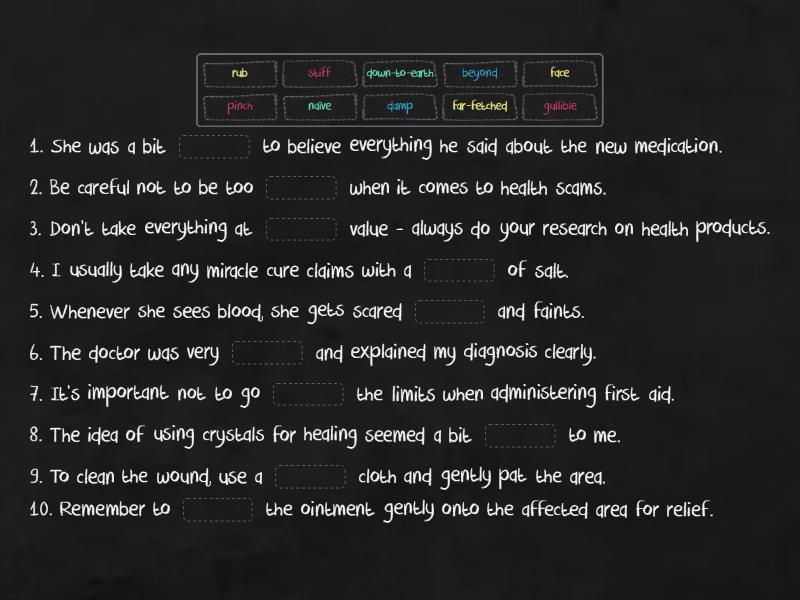 rub stiff down-to-earth beyond face
pinch naïve damp far-fetched gullible
1. She was a bit to believe everything he said about the new medication.
2. Be careful not to be too when it comes to health scams.
3. Don't take everything at value - always do your research on health products.
4. I usually take any miracle cure claims with a of salt.
5. Whenever she sees blood, she gets scared and faints.
6. The doctor was very and explained my diagnosis clearly.
7. It's important not to go the limits when administering first aid.
8. The idea of using crystals for healing seemed a bit to me.
9. To clean the wound, use a cloth and gently pat the area.
10. Remember to the ointment gently onto the affected area for relief.